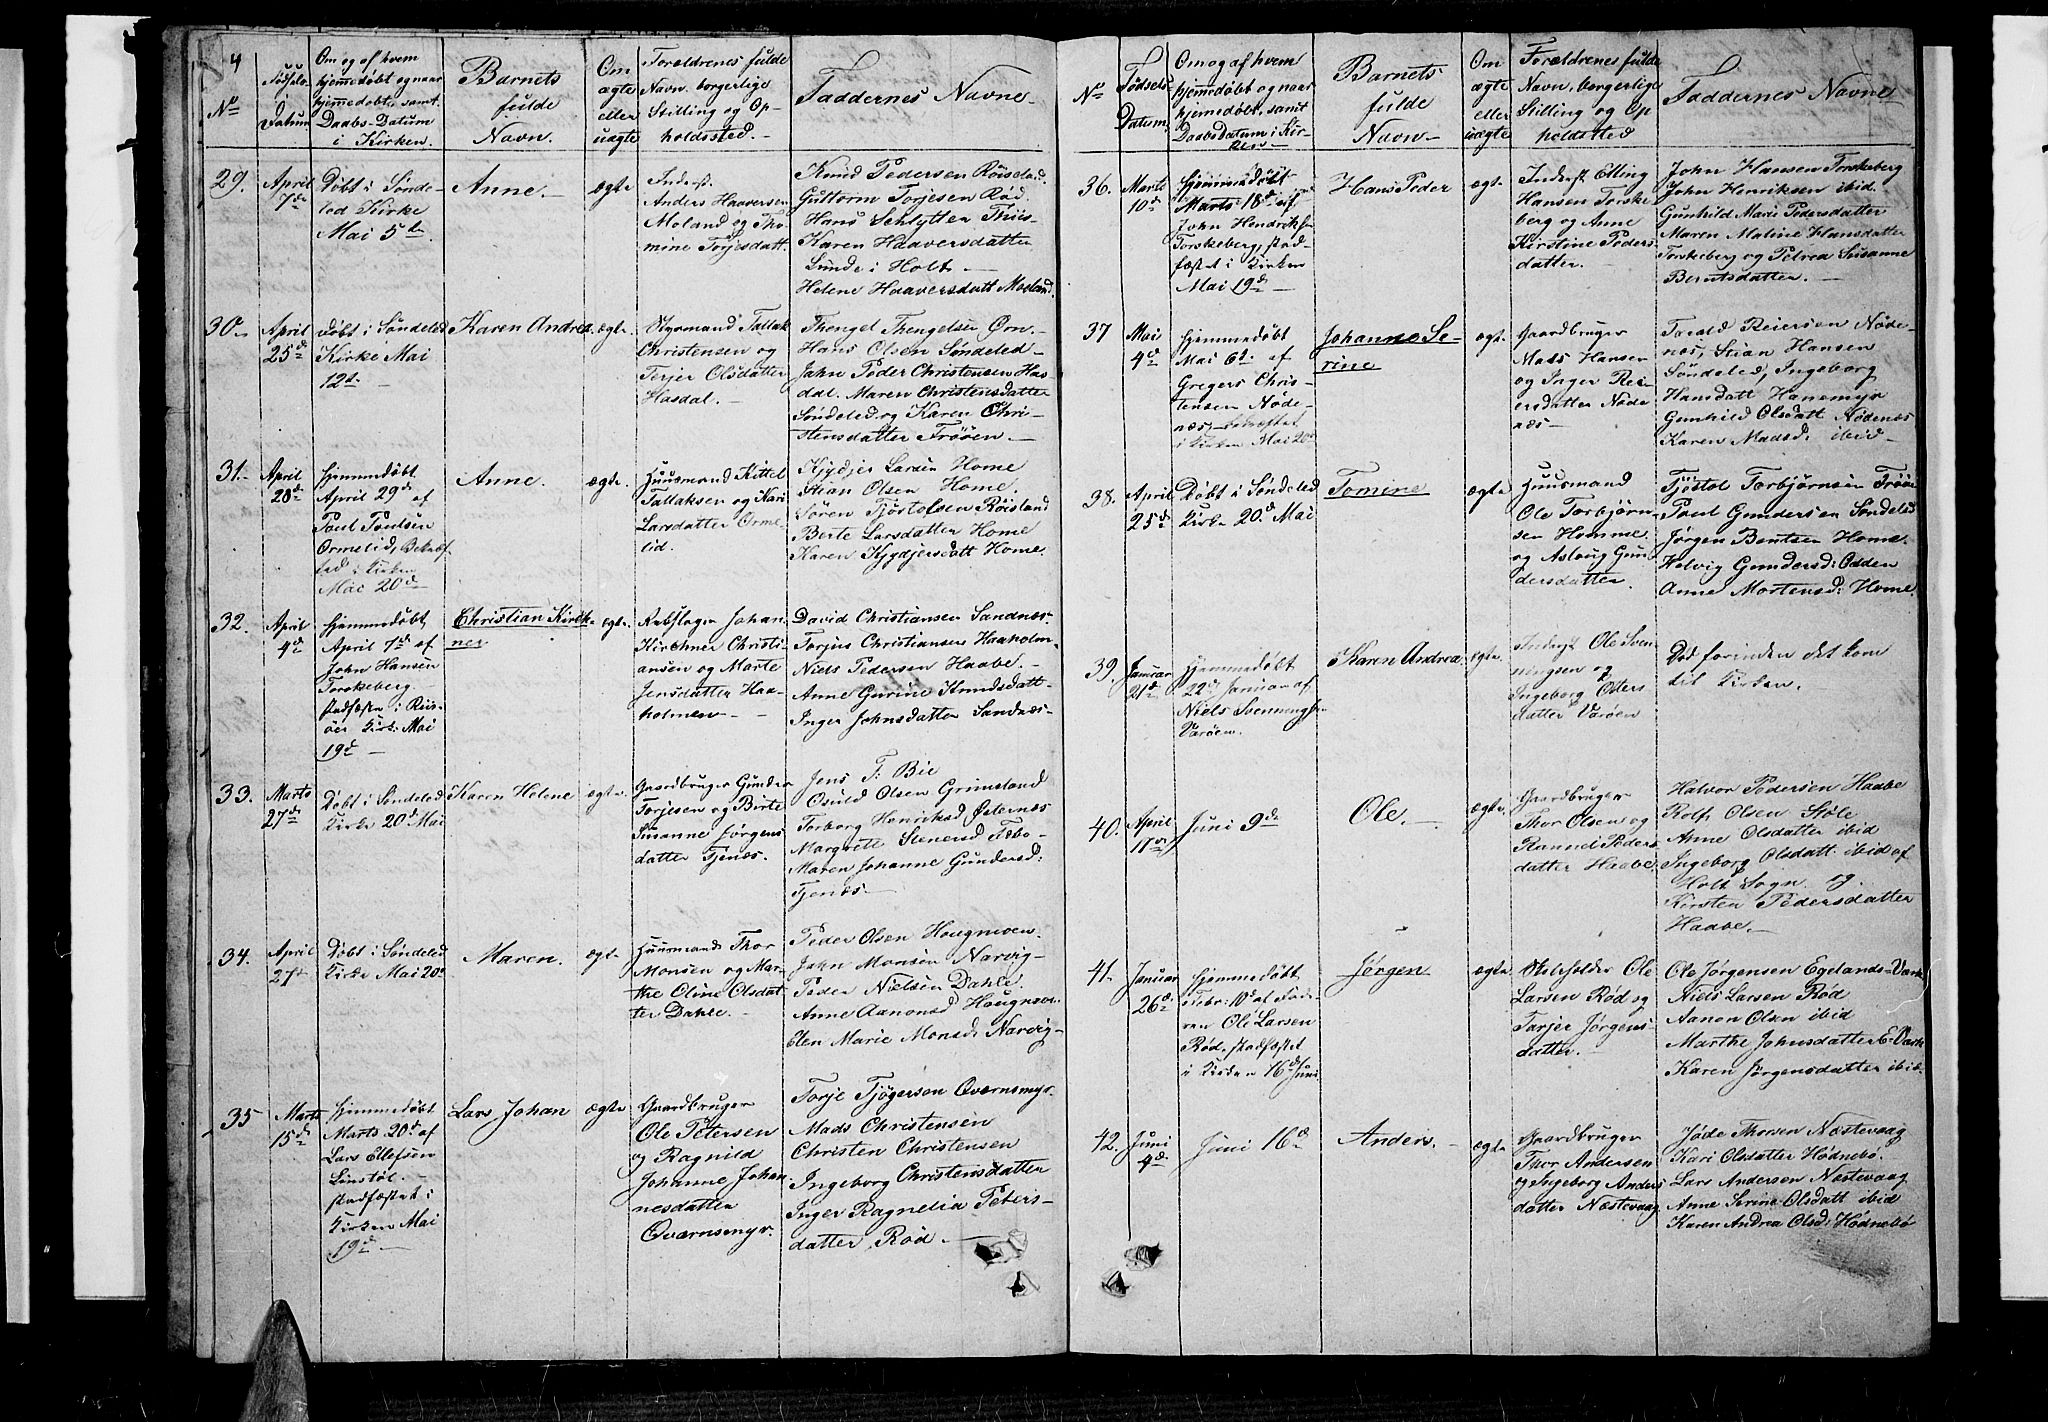 4
No
Fødsels-
Datum
Om og af hvem
hjemmedøbt og naar
hjemmedøbt, samt
Daabs-Datum
i Kirken.
Barnets
fulde
Navn.
Om
ægte
eller
uægte
Forældrenes fulde
Navn, borgerlige
Stilling og Op-
holdssted.
Faddernes Navne
29.
April
7de
Døbt i Sønde-
led Kirke
Mai 5te
Anne.
ægte
Inderst
Anders Haaversen
Moland og Tho-
mine Torjesdatt.
Knud Pedersen Røisland
Guttorm Torjesen Rød
Hans Schlytter Friis
Karen Haaversdatter
Sunde i Holt
Helene Haaversdatt Moland
30
April
25de
Døbt i Søndeled
Kirke Mai
12te
Karen Andrea
ægte
Styrmand Tallak
Christensen og
Terjer Olsdatter
Hasdal.
Thengel Thengelsen Ørn
Hans Olsen Søndeled
John Peder Christensen Has-
dal. Maren Christensdatter
Søndeled og Karen Chri-
stensdatter Trøen
31
April
28de
Hjemmedøbt
April 29de af
Poul Poulsen
Ormelid, Bekræf-
tet i Kirken
Mai 20de
Anne.
ægte
Huusmand Kittel
Tallaksen og Kari
Larsdatter Orme-
lid.
Kjydjer Larsen Home
Stian Olsen Home.
Søren Tjøstolsen Røisland
Berte Larsdatter Home
Karen Kjydjersdatt Home
32.
April
4de
Hjemmedøbt
April 7de af
John Hansen
Torskeberg.
stadfæstet i Riis-
øer Kirk. Mai
19de
Christian Kirch-
ner
ægte
Johan
Kirchner Christi-
ansen og Marte
Jensdatter Haa-
holmen
David Christiansen Sandnæs
Torjus Christiansen Haaholm
Niels Pedersen Haabe.
Anne Gurine Knudsdatt
Inger Johnsdatter Sandnæs
33.
Marts
27de
Døbt i Søndeled
Kirke 20de Mai
Karen Helene
ægte
Gaardbruger Gunder
Torjesen og Birte
Susanne Jørgens-
datter Fjenæs.
Jens T: Bie
Osuld Olsen Grimsland
Torborg Henriksd Østernæs
Margrete Stenersd Febo
Maren Johanne Gundersd:
Fjenæs
34.
April
27de
Døbt i Søndeled
Kirke Mai 20de
Maren.
ægte
Huusmand Thor
Monsen og Mar-
the Oline Olsdat-
ter Dahle.
Peder Olsen Hougmoen.
John Monsen Narvig
Peder Nielsen Dahle.
Anne Aanonsd Hougmoen
Elen Marie Monsd. Narvig
35
Marts
15de
Hjemmedøbt
Marts 20de af
Lars Ellefsen
Linstøl.
stadfæstet i
Kirken Mai
19de
Lars Johan
ægte
Gaardbruger
Ole Petersen
og Ragnild
Johanne Johan-
nesdatter
Qværnsmyr.
Torje Tjøgersen Qværnsmyr.
Mads Christensen
Christen Christensen
Ingeborg Christensdatter
Inger Ragnelia Peters-
datter Rød
No
Fødsels
Datum
Om og af hvem
hjemmedøbt og naar
hjemmedøbt, samt
Daabsdatum i Kir-
ken
Barnets
fulde
Navn
Om
ægte
eller
uægte
Forældrenes fulde
Navn, borgerlige
Stilling og Op-
holdsted
Faddernes Navne
36.
Marts
10de
Hjemmedøbt
Marts 18de af
John Hendriksen
Torskeberg, stad-
fæstet i Kirken
Mai 19de
Hans Peder
ægte
Inderst Elling
Hansen Torske-
berg og Anne
Kirstine Peders-
datter.
John Hansen Torskeberg
John Henriksen ibid.
Gunhild Marie Pedersdatter
Maren Maline Hansdatter
Torskeberg og Petrea Susanne
Berntsdatter.
37
Mai
4de
Hjemmedøbt
Mai 6te af
Gregers Chris-
tensen Nøde-
næs, bekræftet
i Kirken Mai 20de
Johanne Se-
rine
ægte
Gaardbruger
Mads Hansen
og Inger Rei-
ersdatter Nøde-
næs
Reiersen Nøde-
næs, Stian Hansen
Søndeled, Ingeborg
Hansdatt Hanemyr
Gunhild Olsdatt Nødenæs
Karen Madsd: ibid
38.
April
25de
Døbt i Søndeled
Kirke 20de Mai
Tomine
ægte
Huusmand
Ole Torbjørn-
sen Homme
og Aslaug Gun-
dersdatter.
Tjøstol Torbjørnsen Trøen
Poul Gundersen Søndeled
Jørgen Bentsen Home.
Helvig Gundersd: Odden
Anne Mortensd: Home.
39.
Januar
21de
Hjemmedøbt
22de Januar af
Niels Svenningsen
Varøen.
Karen Andrea
ægte
Inderst Ole Sven-
ningsen og
Ingeborg Osters-
datter Varøen
Død forinden det kom
til Kirken.
40.
April
17de
Juni 9de
Ole.
ægte
Gaardbruger
Thor Olsen og
Rannei Peders-
datter Haabe
Halvor Pedersen Haabe
Rolf Olsen Støle
Anne Olsdatter ibid
Ingeborg Olsdatt. ibid af
Holt Sogn. og
Kirsten Pedersdatter
Haabe.
41.
Januar
26de
Hjemmedøbt
Febr: 10de af Fade-
ren Ole Larsen
Rød, stadfæstet
i Kirken 16de Juni
Jørgen
ægte
Skoleholder Ole
Larsen Rød og
Tarjer Jørgens-
datter.
Ole Jørgensen Egelands-Værk
Niels Larsen Rød
Aanon Olsen ibid
Marthe Johnsdatter E-Værk
Karen Jørgensdatter ibid.
42.
Juni
4de
Juni 16de
Anders.
ægte
Gaardbruger
Thor Andersen
og Ingeborg Anders-
datter Næstevaag
Jøde Thorsen Næstevaag
Kari Olsdatter Hødnebø.
Lars Andersen Næstevaag
Anne Serine Olsdatt ibid
Karen Andrea Olsd: Hødnebø